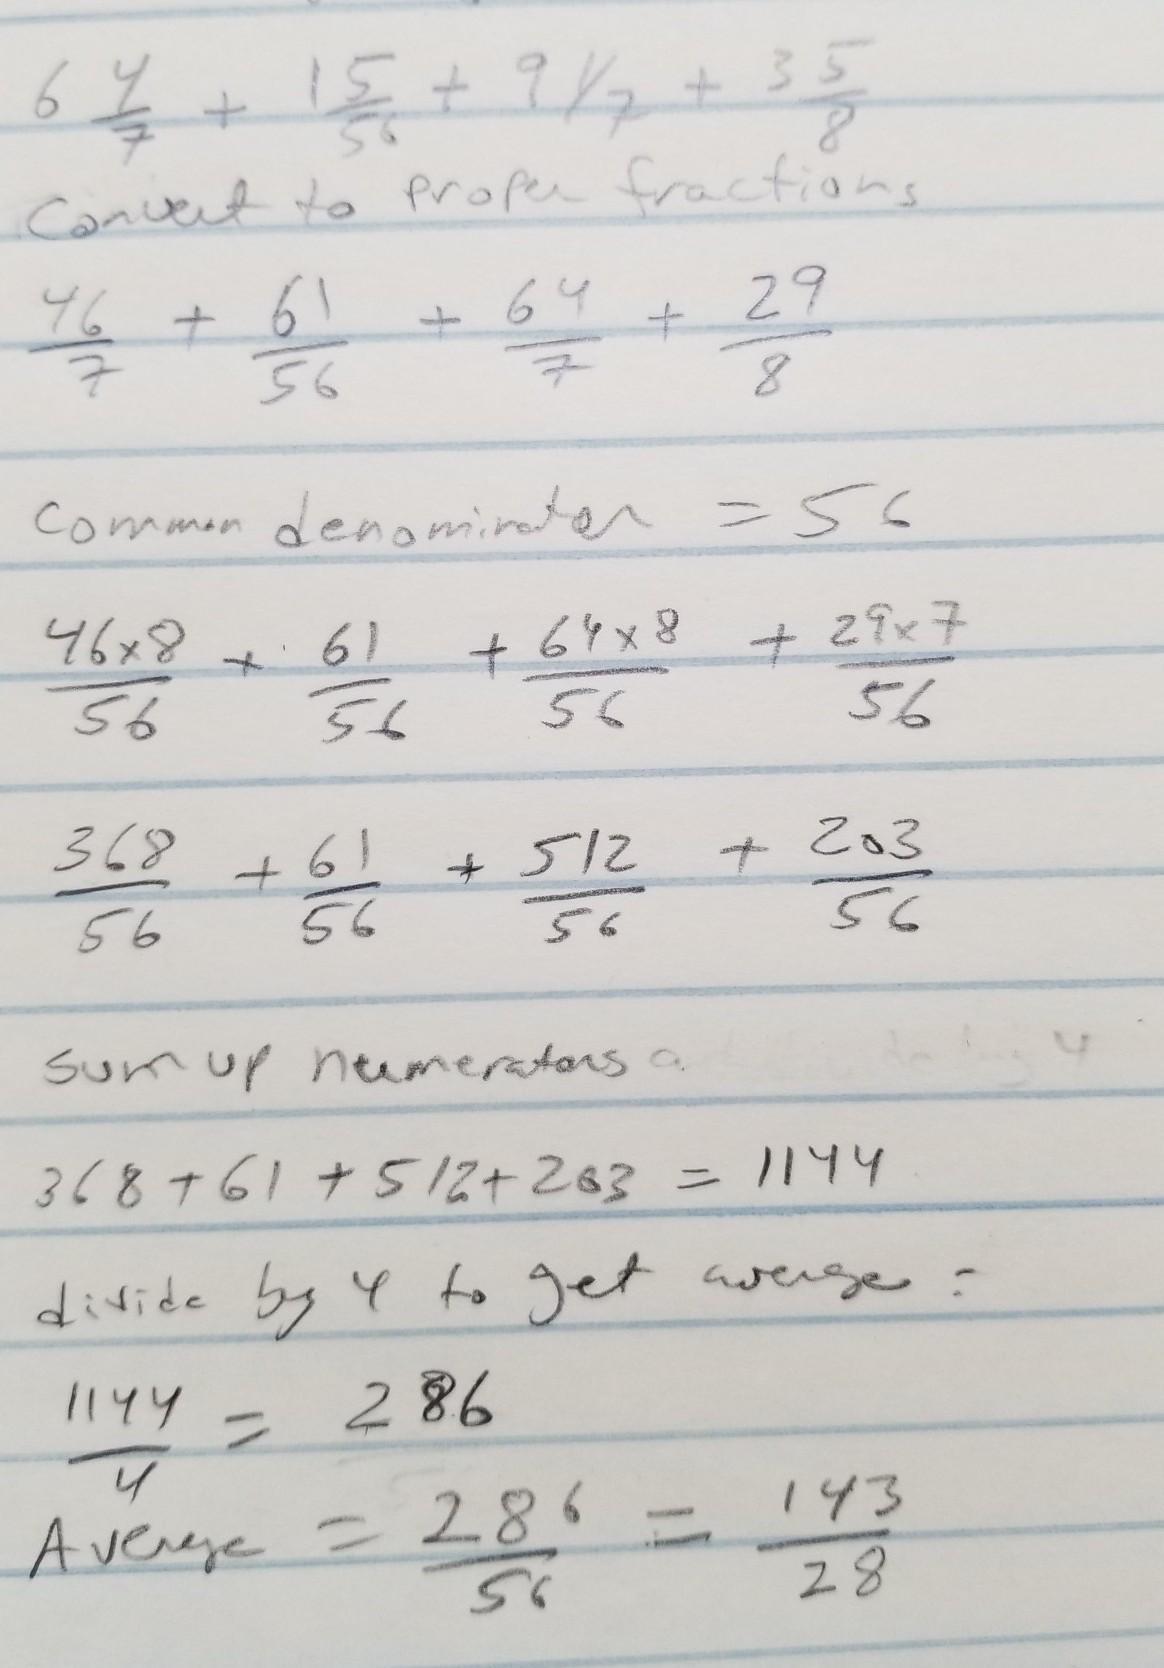 6 4/7 + 1 5/56 + 9 1/7 + 3 5/8
Convert to proper fractions
46/7 + 61/56 + 64/7 + 29/8
Common denominator = 56
46x8/56 + 61/56 + 64x8/56 + 29x7/56
368/56 + 61/56 + 512/56 + 203/56
Sum up numerators
368 + 61 + 512 + 203 = 1144
divide by 4 to get average =
1144/4 = 286
Average = 286/56 = 143/28